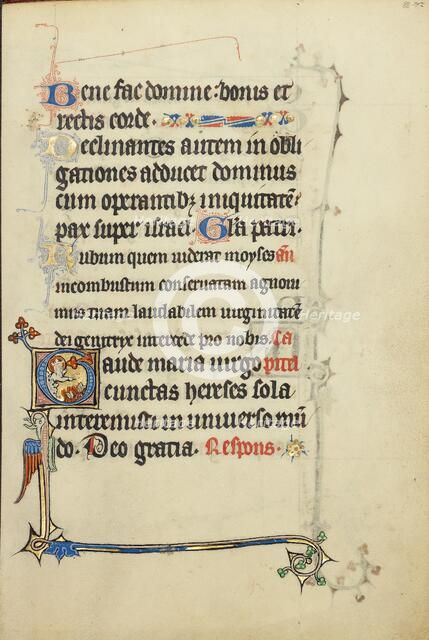 Bene fac domine: bonis et
rectis corde.
Declinantes autem in obli
gationes adducet dominus
cum operantibꝫ iniquitatē
pax super israel. Glā patri.
Rubrum quem viderat moyses añ
incombustum conservatam agnoui
mus tuam laudabilem virginitatē
dei genitrix intercede pro nobis. Ca
Gaude maria virgo pitel
cunctas hereses sola
interemisti in universo mū
do. Deo gratia. Respons.
Heritage